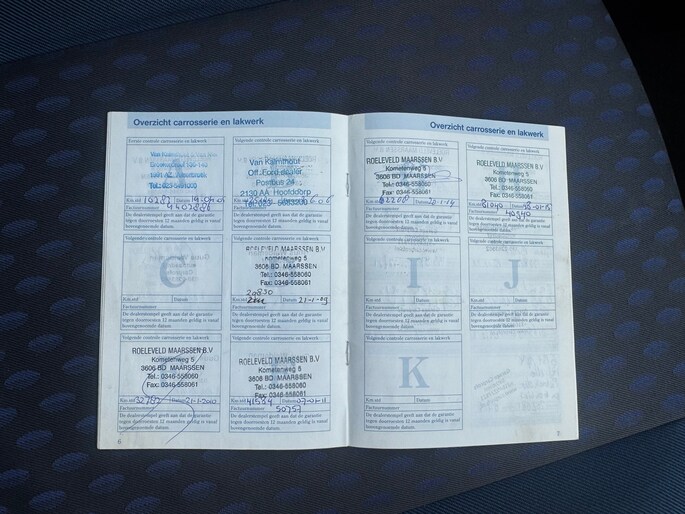 Overzicht carrosserie en lakwerk
Eerste controle carrosserie en lakwerk
Km.std 10287 Datum
Factuurnummer
De dealerstempel geeft aan dat de garantie
tegen doorroesten 12 maanden geldig is vanaf
bovengenoemde datum.
Volgende controle carrosserie en lakwerk
Van Kalmthout
Off. Ford dealer
Postbus 24
2130 AA Hoofddorp
Km.std Datum
Factuurnummer
De dealerstempel geeft aan dat de garantie
tegen doorroesten 12 maanden geldig is vanaf
bovengenoemde datum.
Volgende controle carrosserie en lakwerk
C
Km.std Datum
Factuurnummer
De dealerstempel geeft aan dat de garantie
tegen doorroesten 12 maanden geldig is vanaf
bovengenoemde datum.
ROELEVELD MAARSSEN B.V
Kometenweg 5
3606 BD MAARSSEN
Tel.: 0346-558060
Fax: 0346-558061
Km.std Datum 21-1-09
Factuurnummer
De dealerstempel geeft aan dat de garantie
tegen doorroesten 12 maanden geldig is vanaf
bovengenoemde datum.
Volgende controle carrosserie en lakwerk
ROELEVELD MAARSSEN B.V
Kometenweg 5
3606 BD MAARSSEN
Tel.: 0346-558060
Fax: 0346-558061
Km.std 32787 Datum 21-1-2010
Factuurnummer
De dealerstempel geeft aan dat de garantie
tegen doorroesten 12 maanden geldig is vanaf
bovengenoemde datum.
Volgende controle carrosserie en lakwerk
ROELEVELD MAARSSEN B.V
Kometenweg 5
3606 BD MAARSSEN
Tel.: 0346-558060
Fax: 0346-558061
Km.std 41534 Datum 07-01-11
Factuurnummer 50757
De dealerstempel geeft aan dat de garantie
tegen doorroesten 12 maanden geldig is vanaf
bovengenoemde datum.
6
Overzicht carrosserie en lakwerk
Volgende controle carrosserie en lakwerk
ROELEVELD MAARSSEN B.V
Kometenweg 5
3606 BD MAARSSEN
Tel.: 0346-558060
Fax: 0346-558061
Km.std Datum
Factuurnummer
De dealerstempel geeft aan dat de garantie
tegen doorroesten 12 maanden geldig is vanaf
bovengenoemde datum.
Volgende controle carrosserie en lakwerk
ROELEVELD MAARSSEN B.V
Kometenweg 5
3606 BD MAARSSEN
Tel.: 0346-558060
Fax: 0346-558061
Km.std Datum
Factuurnummer
De dealerstempel geeft aan dat de garantie
tegen doorroesten 12 maanden geldig is vanaf
bovengenoemde datum.
Volgende controle carrosserie en lakwerk
I
Km.std Datum
Factuurnummer
De dealerstempel geeft aan dat de garantie
tegen doorroesten 12 maanden geldig is vanaf
bovengenoemde datum.
Volgende controle carrosserie en lakwerk
J
Km.std Datum
Factuurnummer
De dealerstempel geeft aan dat de garantie
tegen doorroesten 12 maanden geldig is vanaf
bovengenoemde datum.
Volgende controle carrosserie en lakwerk
K
Km.std Datum
Factuurnummer
De dealerstempel geeft aan dat de garantie
tegen doorroesten 12 maanden geldig is vanaf
bovengenoemde datum.
7